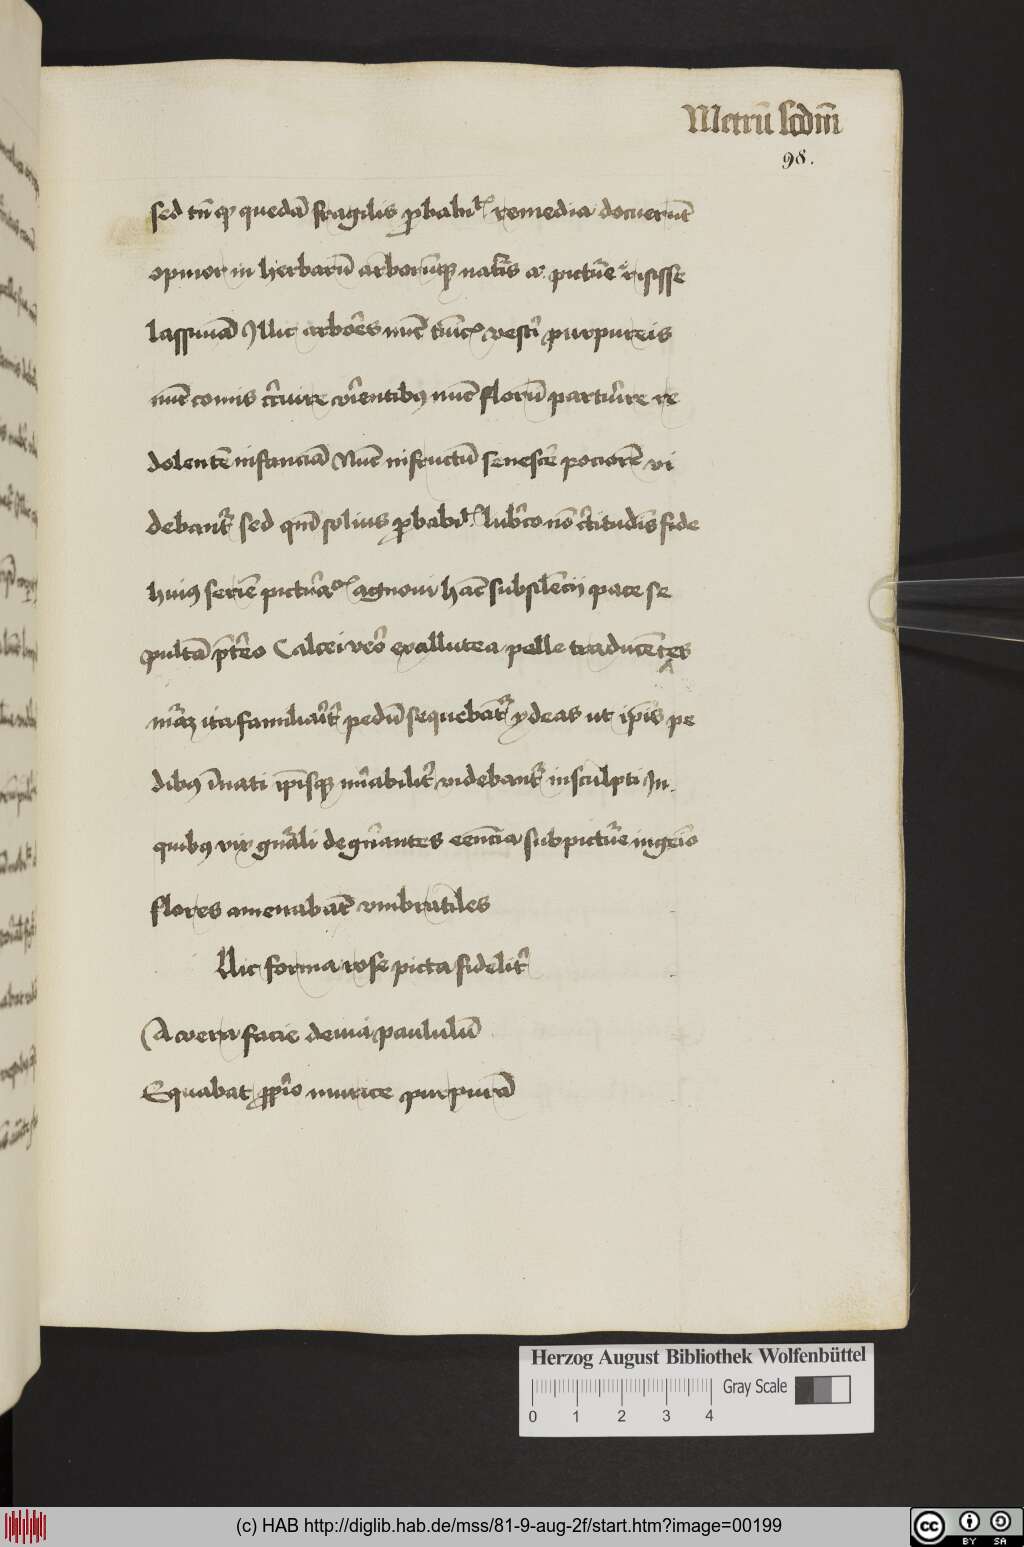 Metrū scdm̄
98.
sed tn̄ qp̄ quedā fragilis ꝓbabil̕ remedia docuerūt
opinor in herbarū arborūqꝫ nat̄is a pictu͛e risisse
lassiuā Illic arbo͛es nūc tunic̕ vesti͛ purpureis
nūc comis c͛nire vi͛entibꝰ nūc florū partu͛ire re
dolentē infanciā Nūc in fructū senesce͛ pociorē vi
debant͛ sed qm̄ solius ꝓbabil̕ lub͛co nō c͛titudīs fide
huiꝰ seriē pictu͛aꝝ agnoui hāc sub silēcij pace se
pultā p̄t͛eo Calcei vͦo ex allutea pelle traducētes
m͛aꝫ ita familia͛it͛ pedū sequebāt͛ ydeas ut ip̄is pe
dibꝰ īnati ip̄isqꝫ mi͛abilit͛ videbant͛ insculpti In
quibꝰ vix gn͛ali degn͛antes eēncia sub pictu͛e ingēio
flores amenabāt vmbratiles
Illic forma rose picta fidelit͛
A vera facie deuia paululū
Equabat ꝓpͥo murice purpurā
Herzog August Bibliothek Wolfenbüttel
Gray Scale
0 1 2 3 4
(c) HAB http://diglib.hab.de/mss/81-9-aug-2f/start.htm?image=00199
cc BY SA